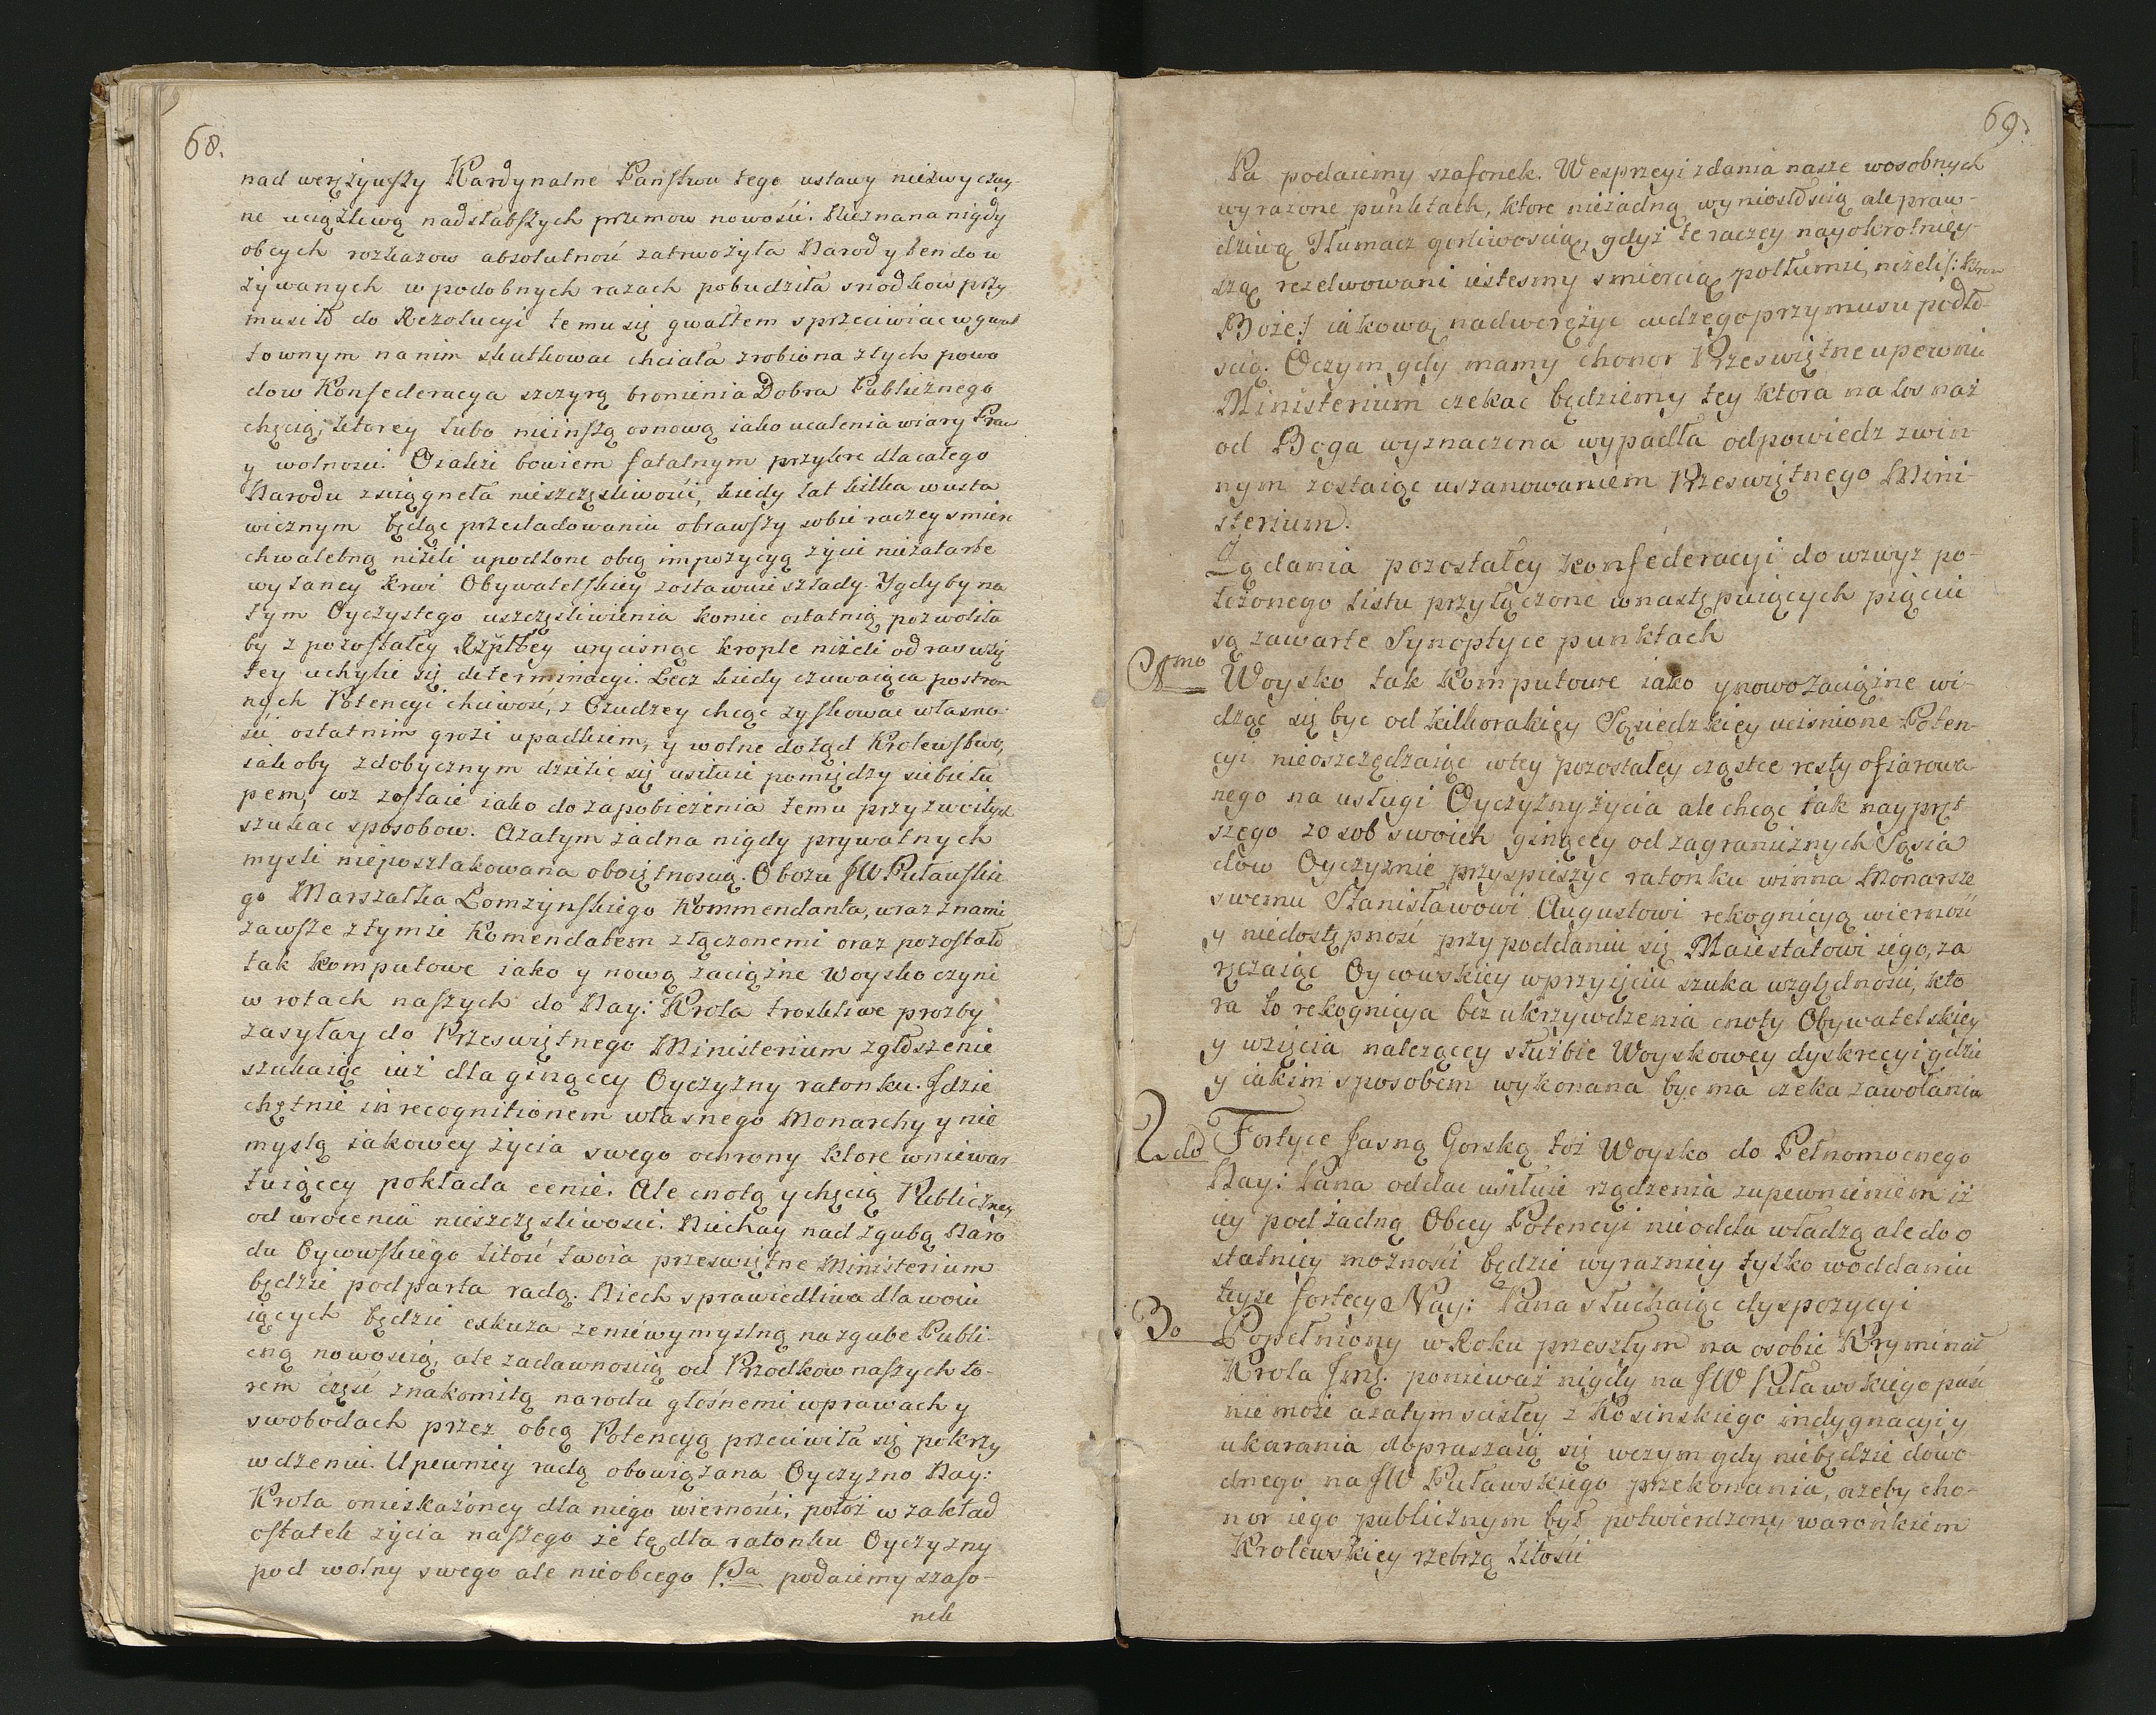 68.
nad werężywszy Kardynalne Państwu tego ustawy niezwyczay-
ne uciążlewą nadsłabszych przemow nowość. Nieznana nigdy
obcych rozkazow absolutność zatrwożyła Narod y ten do u
żywanych w podobnych razach pobudziła srodkow przy
musiłd do Rezolucyi temu się gwałtem sprzeciwiac w gwał
townym na nim skutkowac chciała zrobiona z tych powo
dow Konfederacya szczyrą bronienia Dobra Publicznego
chęcią, ktorey lubo nieinszą osnową iako ucalenia wiary Praw
y wolnosci. Ozakże bowiem fatalnym przykre dla całego
Narodu zsciągneła nieszczęsliwości, kiedy lat kilka w usta
wicznym będąc przesladowaniu obrawszy sobie raczey smierc
chwalebną niżeli upodlone obcą impozycyą życie niezatarte
wylaney krwi Obywatelskiey zostawuie szlady. Y gdyby na
tym Oyczystego uszczęsliwienia koniec ostatnią pozwoliła
by z pozostałey Rzpltey wycisnąc krople niżeli od raz wzię
tey uchylic się determinacyi. Lecz kiedy czuwaiąca postron
nych Potencyi chciwość, z Cudzey chcąc zyskowac własno
sci ostatnim grozi upadkiem, y wolne dotąd Krolewstwo,
iakoby zdobycznym dzielic się usiłuie pomiędzy siebie łu
pem, coz zostaie iako do zapobieżenia temu przyzwoitych
szukac sposobow. Azatym żadna nigdy prywatnych
mysli nieposzlakowana oboiętnoscią. Obozu JW Pułauskie
go Marszałka Łomżynskiego Kommendanta, wraz z nami
zawsze z tymże Komendatem złączonemi oraz pozostałd
tak komputowe iako y nową zaciążne Woysko czyni
w rotach naszych do Nay: Krola troskliwe prozby
zasyłay do Przeswiętnego Ministerium zgłdszenie
szukaiąc iuż dla ginącey Oyczyzny ratonku. Jdzie
chętnie in recognitionem własnego Monarchy y nie
myslą iakowey życia swego ochrony ktore w niewar
tuiącey pokłada cenie. Ale cnotą y chęcią Publiczney
odwrocenia nieszczęsliwosci. Niechay nad zgubą Naro
du Oycowskiego litość twoia przeswiętne Ministerium
będzie podparta radą. Niech sprawiedliwa dla woiu
iących będzie exkuza ze nie wymyslną na zgube Publi-
czną nowoscią, ale zadawnoscią od Przodkow naszych to-
rem część znakomitą narodu głośnemi w prawach y
swobodach przez obcą Potencyą przeciwiła się pokrzy
wdzeniu. Upewniey radą obowiązana Oyczyzno Nay:
Krola o nieskażoney dla niego wierności, położ w zakład
ostatek życia naszego że tę dla ratonku Oyczyzny
pod wolny swego ale nieobcego Pa podaiemy szafo-
nek
69.
Pa podaiemy szafonek. Wesprzeyi zdania nasze w osobnych
wyrażone punktach, ktore nieżadną wyniosłdscią ale praw-
dziwą Tłumacz gorliwoscią, gdyż te raczey nayokrotniey-
szą rezelwowani iestesmy smiercią potłumic, niżeli /: broń
Boże :/ iakową nadwerężyc cudzego przymusu podłd
scią. Oczym gdy mamy chonor Przeswiętne upewnic
Ministerium czekac będziemy tey ktora na los nasz
od Boga wyznaczona wypadła odpowiedz z win
nym zostaiąc uszanowaniem Przeswiętnego Mini-
sterium.
Ządania pozostałey konfederacyi do wzwyz po-
łożonego listu przyłączone w następuiących pięciu
są zawarte Synoptyce punktach
1mo Woysko tak komputowe iako y nowo zaciążne wi-
dząc się byc od kilkorakiey Sąsiedzkiey ucisnione Poten-
cyi nieoszczędzaiąc w tey pozostałey cząstce resty ofiarowa-
nego na usługi Oyczyzny życia ale chcąc iak naypręt
szego z osob swoich ginącey od zagranicznych Sąsia
dow Oyczyznie przyspieszyc ratonku winna Monarsze
swemu Stanisławowi Augustowi rekognicyą wierność
y niedostępność przy poddaniu się Maiestatowi iego, za
ręczaiąc Oycowskiey w przyięciu szuka względności, kto
ra to rekognicya bez ukrzywdzenia cnoty Obywatelskiey
y wzięcia należącey służbie Woyskowey dyskrecyi gdzie
y iakim sposobem wykonana byc ma czeka zawołania
2do Fortyce Jasną Gorską toż Woysko do Pełnomocnego
Nay: Pana oddac usiłuie rządzenia zupewnieniem iż
iey pod żadną Obcey Potencyi nie odda władzą ale do o
statniey możności będzie wyrazniey tylko w oddaniu
teyże fortecy Nay: Pana słuchaiąc dyspozycyi
3o Popełniony w Roku przeszłym na osobie Kryminał
Krola Jmc. ponieważ nigdy na JW Puławskiego paść
nie może azatym scisłey z Kosinskiego indygnacyi y
ukarania dopraszaią się wczym gdy niebędzie dowo
dnego na JW Puławskiego przekonania, azeby cho-
nor iego publicznym był potwierdzony warońkiem
Krolewskiey rzebrzą litości